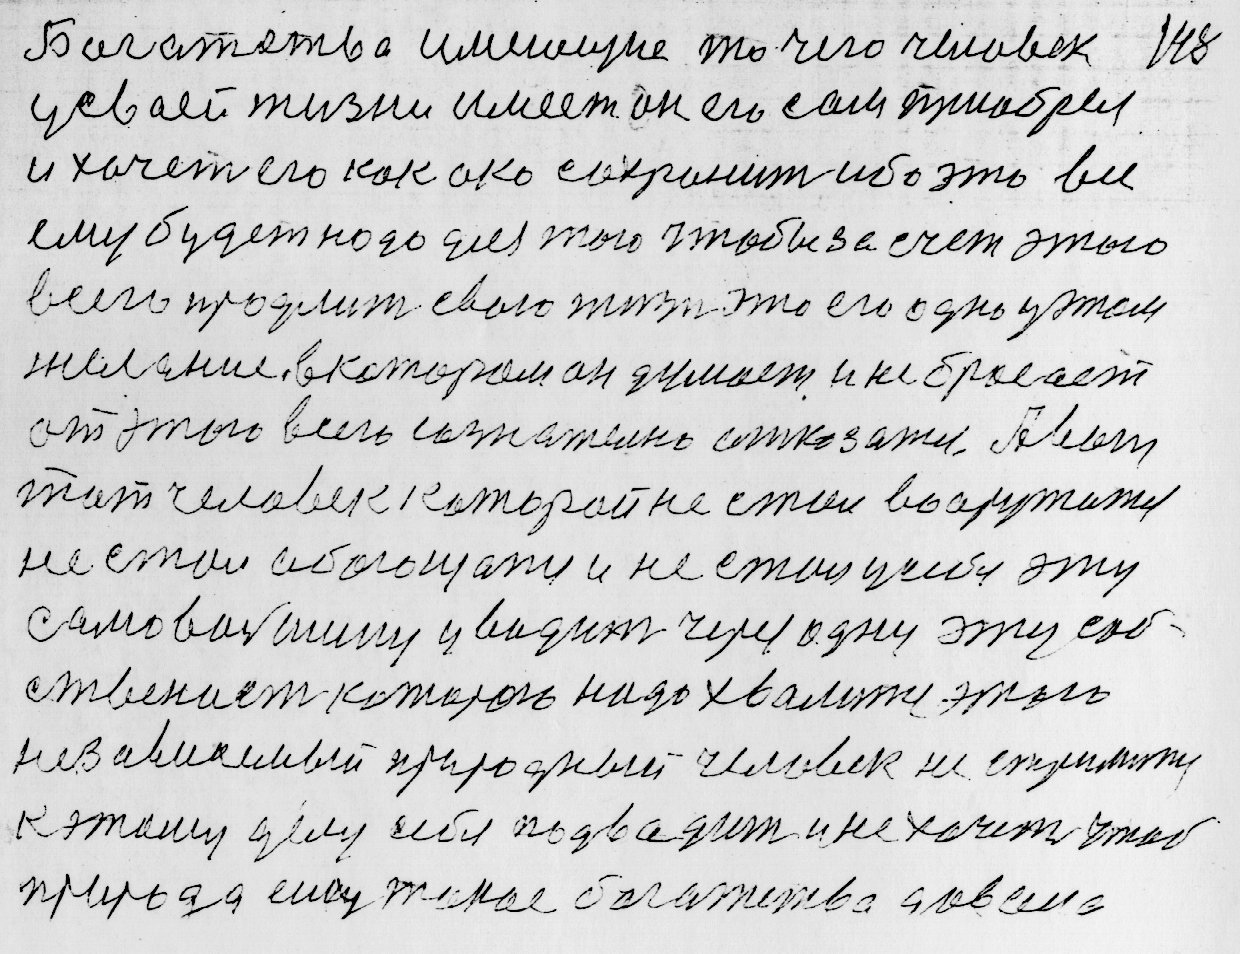 Богатства имеющие то чего человек 148
у своей жизни имеет он его сам приобрел
и хочет его как око сохранит ибо это все
ему будет надо для того чтобы за счет этого
всего продлит свою жизн это его одно у этом
желание. в котором он думает и не бросает
от этого всего сознателно отказатся. А вот
тот человек которой не стал вооружатся
не стал обогощатся и не стал у себя эту
само вводит через одну эту соб-
ственост которою надо хвалится этого
независемый природный человек не стримится
к этому делу себя подводит и не хочет чтоб
природа ему такое богатства довела